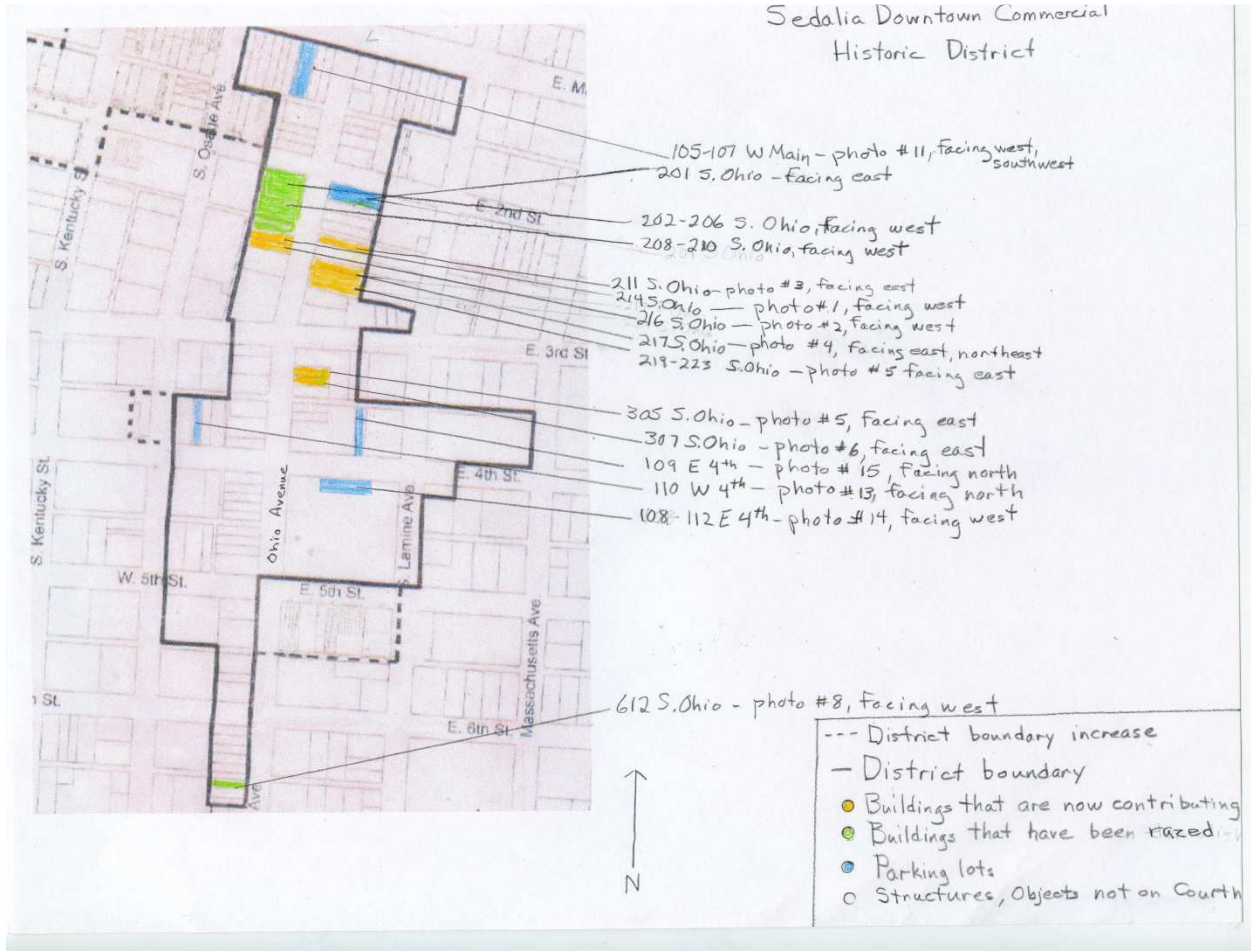 Sedalia Downtown Commercial
Historic District
S. Osage Ave
S. Kentucky St
E. 2nd St.
E. 3rd St
S. Kentucky St.
Ohio Avenue
E. 4th St.
S. Lamine Ave.
W. 5th St.
E. 5th St.
Massachusetts Ave.
E. 6th St.
Ave
105-107 W Main - photo #11, facing west,
southwest
201 S. Ohio - facing east
202-206 S. Ohio, facing west
208-210 S. Ohio, facing west
211 S. Ohio - photo #3, facing east
214 S. Ohio — photo #1, facing west
216 S. Ohio — photo #2, facing west
217 S. Ohio — photo #4, facing east, northeast
219-223 S. Ohio - photo #5 facing east
305 S. Ohio - photo #5, facing east
307 S. Ohio - photo #6, facing east
109 E 4th - photo #15, facing north
110 W 4th - photo #13, facing north
108-112 E 4th - photo #14, facing west
612 S. Ohio - photo #8, facing west
N
--- District boundary increase
— District boundary
Buildings that are now contributing
Buildings that have been razed
Parking lots
Structures, Objects not on Courth